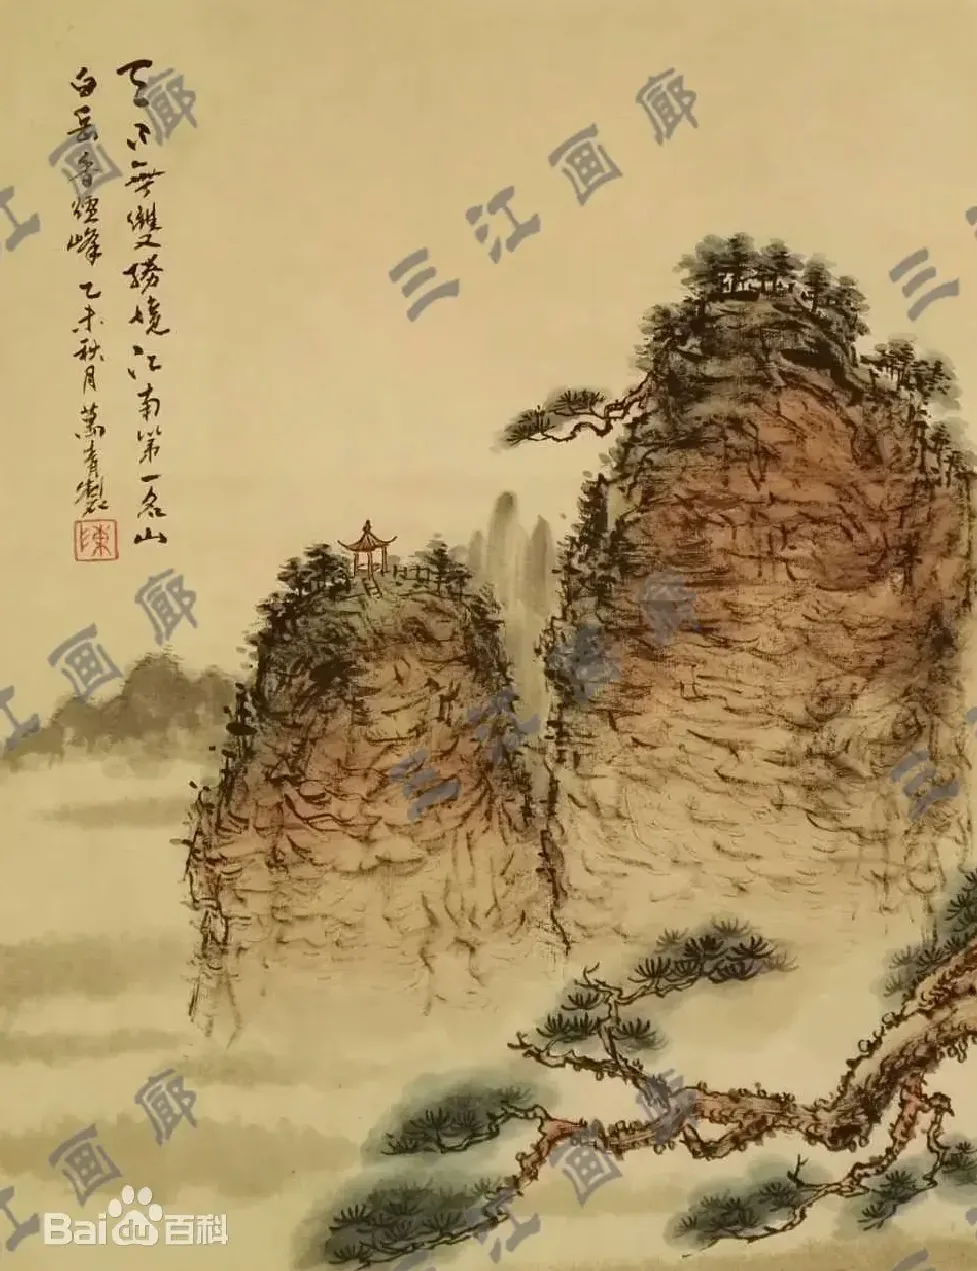 天下無雙勝境江南第一名山
白岳香爐峰 乙未秋月 萬青製
陳
三江画廊
三江画廊
三江画廊
三江画廊
三江画廊
三江画廊
Bai du 百科